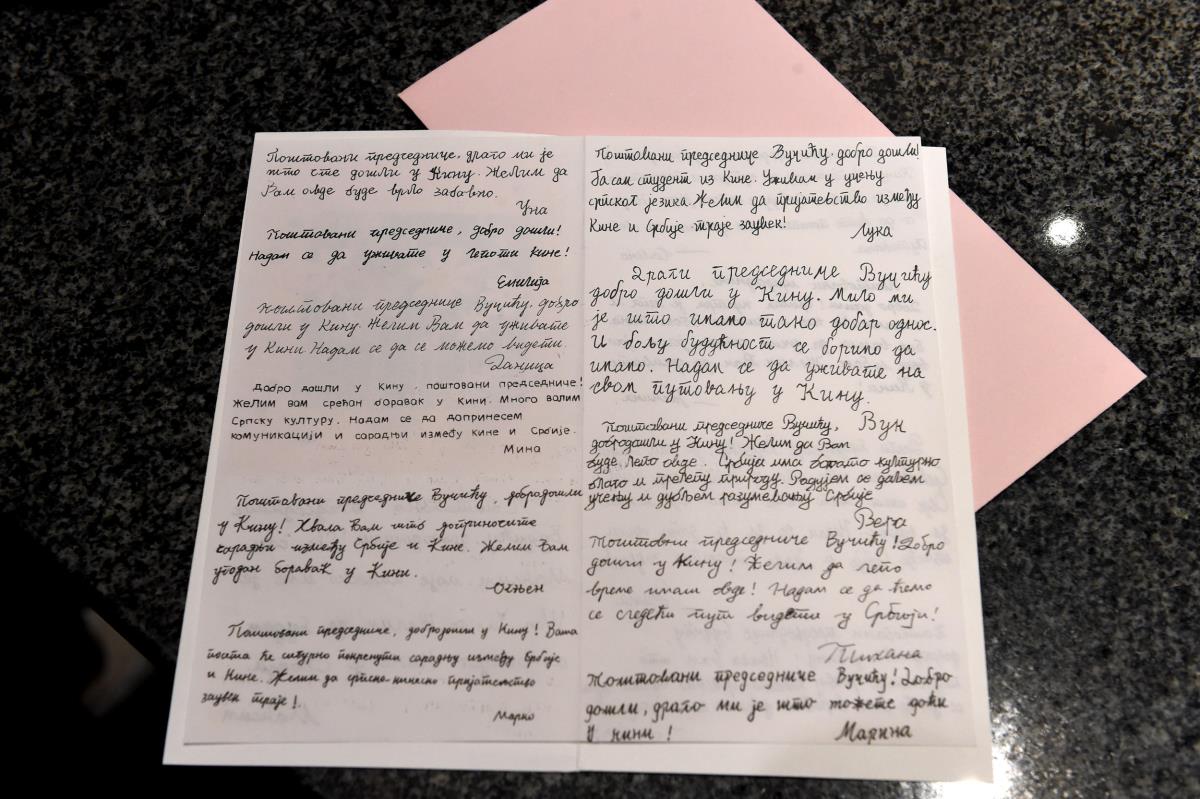 Поштовани председниче, драго ми је
што сте дошли у Кину. Желим да
Вам овде буде врло забавно.
Уна
Поштовани председниче, добро дошли!
Надам се да уживате у лепоти Кине!
Емилија
Поштовани председниче Вучићу, добро
дошли у Кину. Желим Вам да уживате
у Кини. Надам се да се можемо видети.
Даница
Добро дошли у Кину, поштовани председниче!
Желим вам срећан боравак у Кини. Много валим
Српску културу. Надам се да допринесем
комуникацији и сарадњи између Кине и Србије.
Мина
Поштавани председниче Вучићу, добрадошли
у Кину! Хвала Вам што доприносите
сарадњи између Србије и Кине. Желим Вам
угодан боравак у Кини.
Огњен
Поштовани председниче, добродошли у Кину! Ваша
посета ће сигурно покренути сарадњу између Србије
и Кине. Желим да српско-кинеско пријатељство
заувек траје!
Марко
Поштовани председниче Вучићу, добро дошли!
Ја сам студент из Кине. Уживам у учењу
српског језика. Желим да пријатељство између
Кине и Србије траје заувек!
Лука
Драги председниме Вучићу
добро дошли у Кину. Мило ми
је што имамо тако добар однос.
И бољу будућност се боримо да
имамо. Надам се да уживате на
свом путовању у Кину.
Вук
Поштавани председниче Вучићу,
добродошли у Кину! Желим да Вам
буде лепо овде. Србија има богато културно
благо и прелепу природу. Радујем се даљем
учењу и дубљем разумевању Србије
Вера
Поштовни председниче Вучићу! Добро
дошли у Кину! Желим да лепо
време имаш овде! Надам се да ћемо
се следећи пут видети у Србији!
Тихана
Поштовани председниче Вучићу! Добро
дошли, драго ми је што можете доћи
у кини!
Марина